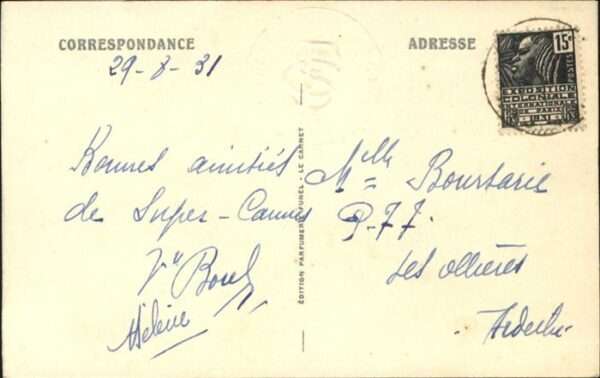 CORRESPONDANCE
29-8-31
Bonnes amitiés
de Super-Cannes
Hélène
ÉDITION PARFUMERIE FUNEL - LE CANNET
ADRESSE
15c
POSTES
EXPOSITION
COLONIALE
INTERNATIONALE
DE PARIS
1931
Mlle Boursarie
P.T.T.
Les Ollières
Ardèche